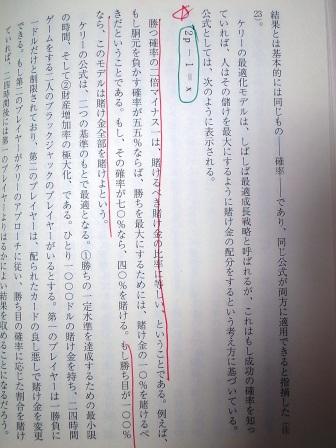 結果とは基本的には同じもの――確率――であり、同じ公式が両方に適用できると指摘した(注
23)。
ケリーの最適化モデルは、しばしば最適成長戦略と呼ばれるが、これはもし成功の確率を知っ
ていれば、人はその儲けを最大にするように賭け金の配分をするという考え方に基づいている。
公式としては、次のように表示される。
2p − 1 = x
勝つ確率の二倍マイナス一は、賭けるべき賭け金の比率に等しい、ということである。例えば、
もし胴元を負かす確率が五五%ならば、勝ちを最大にするためには、賭け金の一〇%を賭けるべ
きだということである。もし、その確率が七〇%なら、四〇%を賭ける。もし勝ち目が一〇〇%
なら、このモデルは賭け金全部を賭けよという。
ケリーの公式は、二つの基準のもとで最適となる。①勝ちの一定水準を達成するための最小限
の時間、そして②財産増加率の極大化、である。ひとり一〇〇〇ドルの賭け金を持ち、二四時間
ゲームをする二人のブラックジャックのプレイヤーがいるとする。第一のプレイヤーは一勝負に
一ドルだけと制限されており、第二のプレイヤーは、配られたカードの良し悪しで賭け金を変更
できる。もし第二のプレイヤーがケリーのアプローチに従い、勝ち目の確率に応じた割合を賭け
ていれば、二四時間後には第一のプレイヤーよりはるかによい結果を収めることになるだろう。